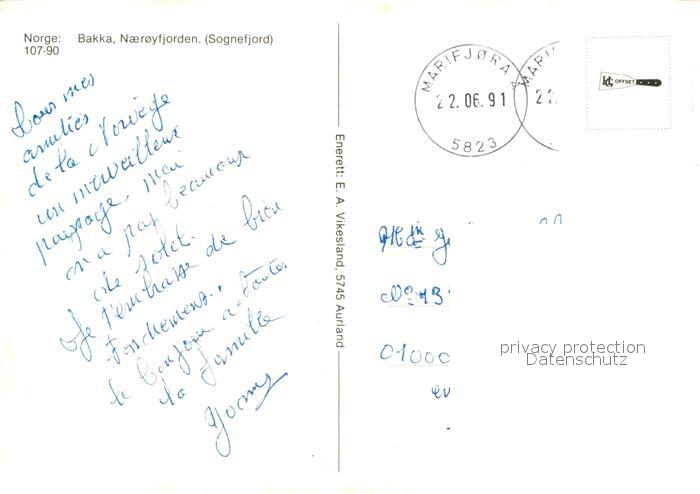 Norge: Bakka, Nærøyfjorden. (Sognefjord)
107-90
MARIFJØRA
22.06.91
5823
MARI
22
LG OFFSET
Tous mes
amitiés
de la Norvège
un merveilleux
paysage, mai
on a pas beaucoup
de soleil.
Je t'embrasse de bien
le bonjour a toute
la famille
Enerett: E. A. Vikesland, 5745 Aurland
No 43
01000
privacy protection
Datenschutz